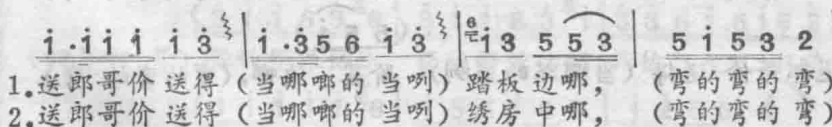 i ·i i i i 3 | i ·3 5 6 i 3 | 6 i 3 5 5 3 | 5 i 5 3 2
1.送郎哥价 送得(当哪啷的 当咧)踏板 边哪, (弯的弯的 弯)
2.送郎哥价 送得(当哪啷的 当咧)绣房 中哪, (弯的弯的 弯)